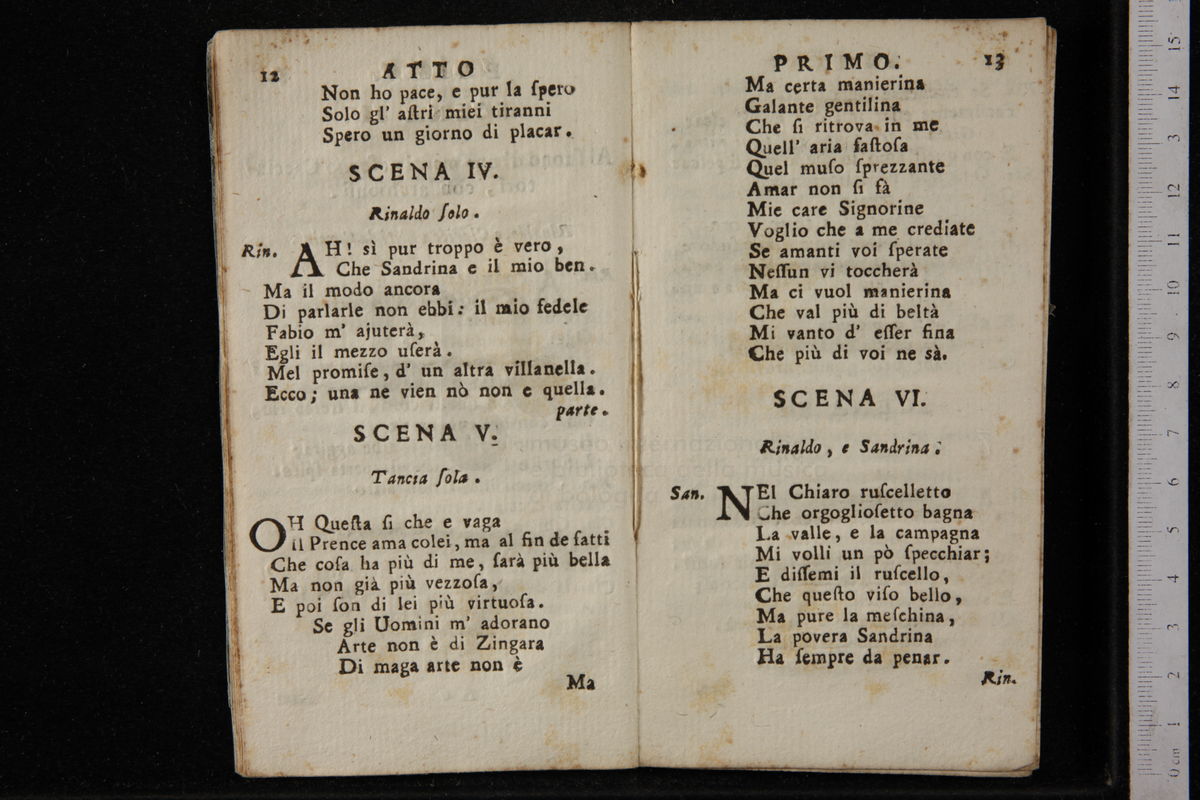 12 ATTO
Non ho pace, e pur la ſpero
Solo gl' aſtri miei tiranni
Spero un giorno di placar.
SCENA IV.
Rinaldo ſolo.
Rin. AH! sì pur troppo è vero,
Che Sandrina e il mio ben.
Ma il modo ancora
Di parlarle non ebbi: il mio fedele
Fabio m' ajuterà,
Egli il mezzo uſerà.
Mel promiſe, d' un altra villanella.
Ecco; una ne vien nò non e quella.
parte.
SCENA V.
Tancia ſola.
OH Queſta ſi che e vaga
il Prence ama colei, ma al fin de fatti
Che coſa ha più di me, ſarà più bella
Ma non già più vezzoſa,
E poi ſon di lei più virtuoſa.
Se gli Uomini m' adorano
Arte non è di Zingara
Di maga arte non è
Ma
PRIMO. 13
Ma certa manierina
Galante gentilina
Che ſi ritrova in me
Quell' aria faſtoſa
Quel muſo ſprezzante
Amar non ſi fà
Mie care Signorine
Voglio che a me crediate
Se amanti voi ſperate
Neſſun vi toccherà
Ma ci vuol manierina
Che val più di beltà
Mi vanto d' eſſer fina
Che più di voi ne sà.
SCENA VI.
Rinaldo, e Sandrina.
San. NEl Chiaro ruſcelletto
Che orgoglioſetto bagna
La valle, e la campagna
Mi volli un pò ſpecchiar;
E diſſemi il ruſcello,
Che queſto viſo bello,
Ma pure la meſchina,
La povera Sandrina
Ha ſempre da penar.
Rin.
museo internazionale
biblioteca della musica
bologna
0 cm 1 2 3 4 5 6 7 8 9 10 11 12 13 14 15